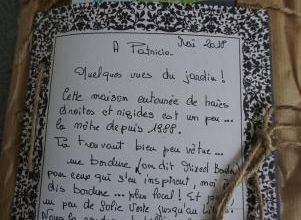 A Patricia Mai 2018
Quelques vues du jardin !
Cette maison entourée de haies
droites et rigides est un peu ...
la nôtre depuis 1988.
Ta trouvant bien peu vêtue ...
une bordure (on dit Mixed Border
pour ceux qui s'en inspirent, moi je
dis bordure ... plus local ! Et
un peu de folie Verte jusqu'au